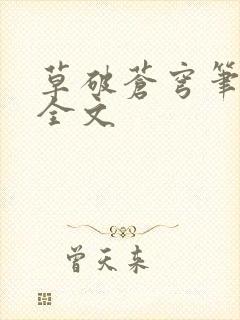 草破蒼穹筆
全文
曾天来